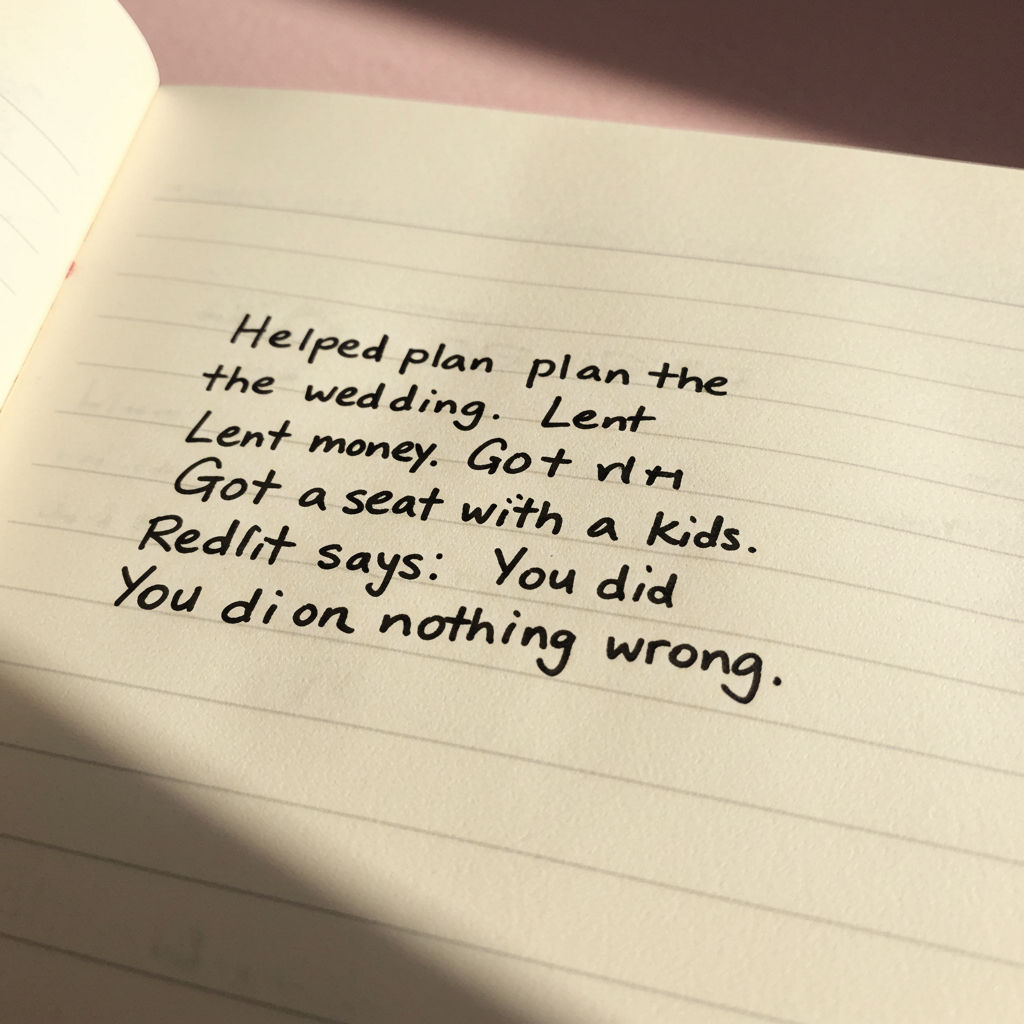 Helped plan plan the
the wedding. Lent
Lent money. Got
Got a seat with a kids.
Redlit says: You did
You dion nothing wrong.